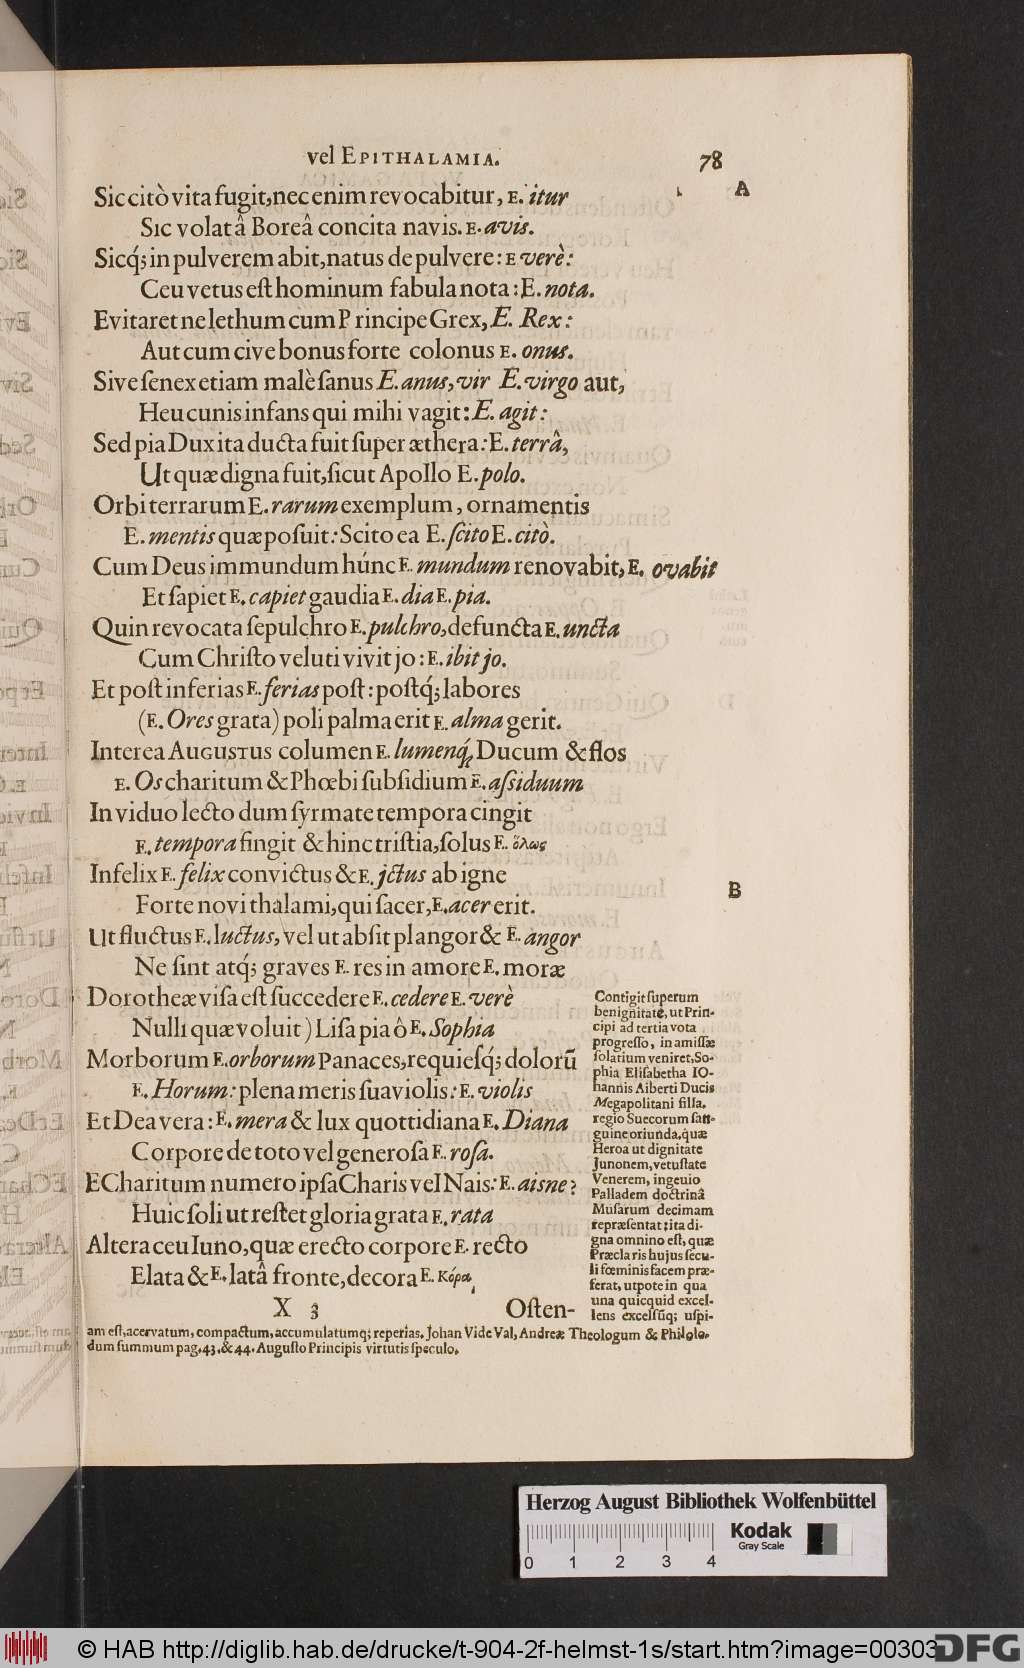 vel EPITHALAMIA. 78
A
Sic citò vita fugit, nec enim revocabitur, E. itur
Sic volat â Boreâ concita navis. E. avis.
Sicq́; in pulverem abit, natus de pulvere: E verè:
Ceu vetus eſt hominum fabula nota: E. nota.
Evitaret ne lethum cum Principe Grex, E. Rex:
Aut cum cive bonus forte colonus E. onus.
Sive ſenex etiam malè ſanus E. anus, vir E. virgo aut,
Heu cunis infans qui mihi vagit: E. agit:
Sed pia Dux ita ducta fuit ſuper æthera: E. terrâ,
Ut quæ digna fuit, ſicut Apollo E. polo.
Orbi terrarum E. rarum exemplum, ornamentis
E. mentis quæ poſuit: Scito ea E. ſcito E. citò.
Cum Deus immundum húnc E. mundum renovabit, E. ovabit
Et ſapiet E. capiet gaudia E. dia E. pia.
Quin revocata ſepulchro E. pulchro, defuncta E. uncta
Cum Chriſto veluti vivit jo: E. ibit jo.
Et poſt inferias E. ferias poſt: poſtq́; labores
(E. Ores grata) poli palma erit E. alma gerit.
Interea AUGUSTUS columen E. lumenq́; Ducum & flos
E. Os charitum & Phœbi ſubſidium E. aſsiduum
In viduo lecto dum ſyrmate tempora cingit
E. tempora fingit & hinc triſtia, ſolus E. ὅλως
Infelix E. felix convictus & E. jctus ab igne
B
Forte novi thalami, qui ſacer, E. acer erit.
Ut fluctus E. luctus, vel ut abſit plangor & E. angor
Ne ſint atq́; graves E. res in amore E. moræ
Dorotheæ viſa eſt ſuccedere E. cedere E. verè
Nulli quæ voluit) Liſa pia ô E. Sophia
Morborum E. orborum Panaces, requieſq́; dolorū
E. Horum: plena meris ſuaviolis: E. violis
Et Dea vera: E. mera & lux quottidiana E. Diana
Corpore de toto vel generoſa E. roſa.
E Charitum numero ipſa Charis vel Nais: E. aisne?
Huic ſoli ut reſtet gloria grata E. rata
Altera ceu Iuno, quæ erecto corpore E. recto
Elata & E. latâ fronte, decora E. Κόρα,
Contigit ſuperum
benignitate, ut Prin-
cipi ad tertia vota
progreſſo, in amiſſæ
ſolatium veniret, So-
phia Eliſabetha IO-
hannis Alberti Ducis
Megapolitani filia,
regio Suecorum ſan-
guine oriunda, quæ
Heroa ut dignitate
Junonem, vetuſtate
Venerem, ingenio
Palladem doctrinâ
Muſarum decimam
repræſentat: ita di-
gna omnino eſt, quæ
Præclaris hujus ſecu-
li fœminis facem præ-
ferat, utpote in qua
una quicquid excel-
lens excelſūq; uſpi-
X 3 Oſten-
am eſt, acervatum, compactum, accumulatumq; reperias. Johan Vide Val, Andreæ Theologum & Philolo-
dum ſummum pag. 43. & 44. Auguſto Principis virtutis ſpeculo.
Herzog August Bibliothek Wolfenbüttel
Kodak
Gray Scale
0 1 2 3 4
© HAB http://diglib.hab.de/drucke/t-904-2f-helmst-1s/start.htm?image=00303
DFG